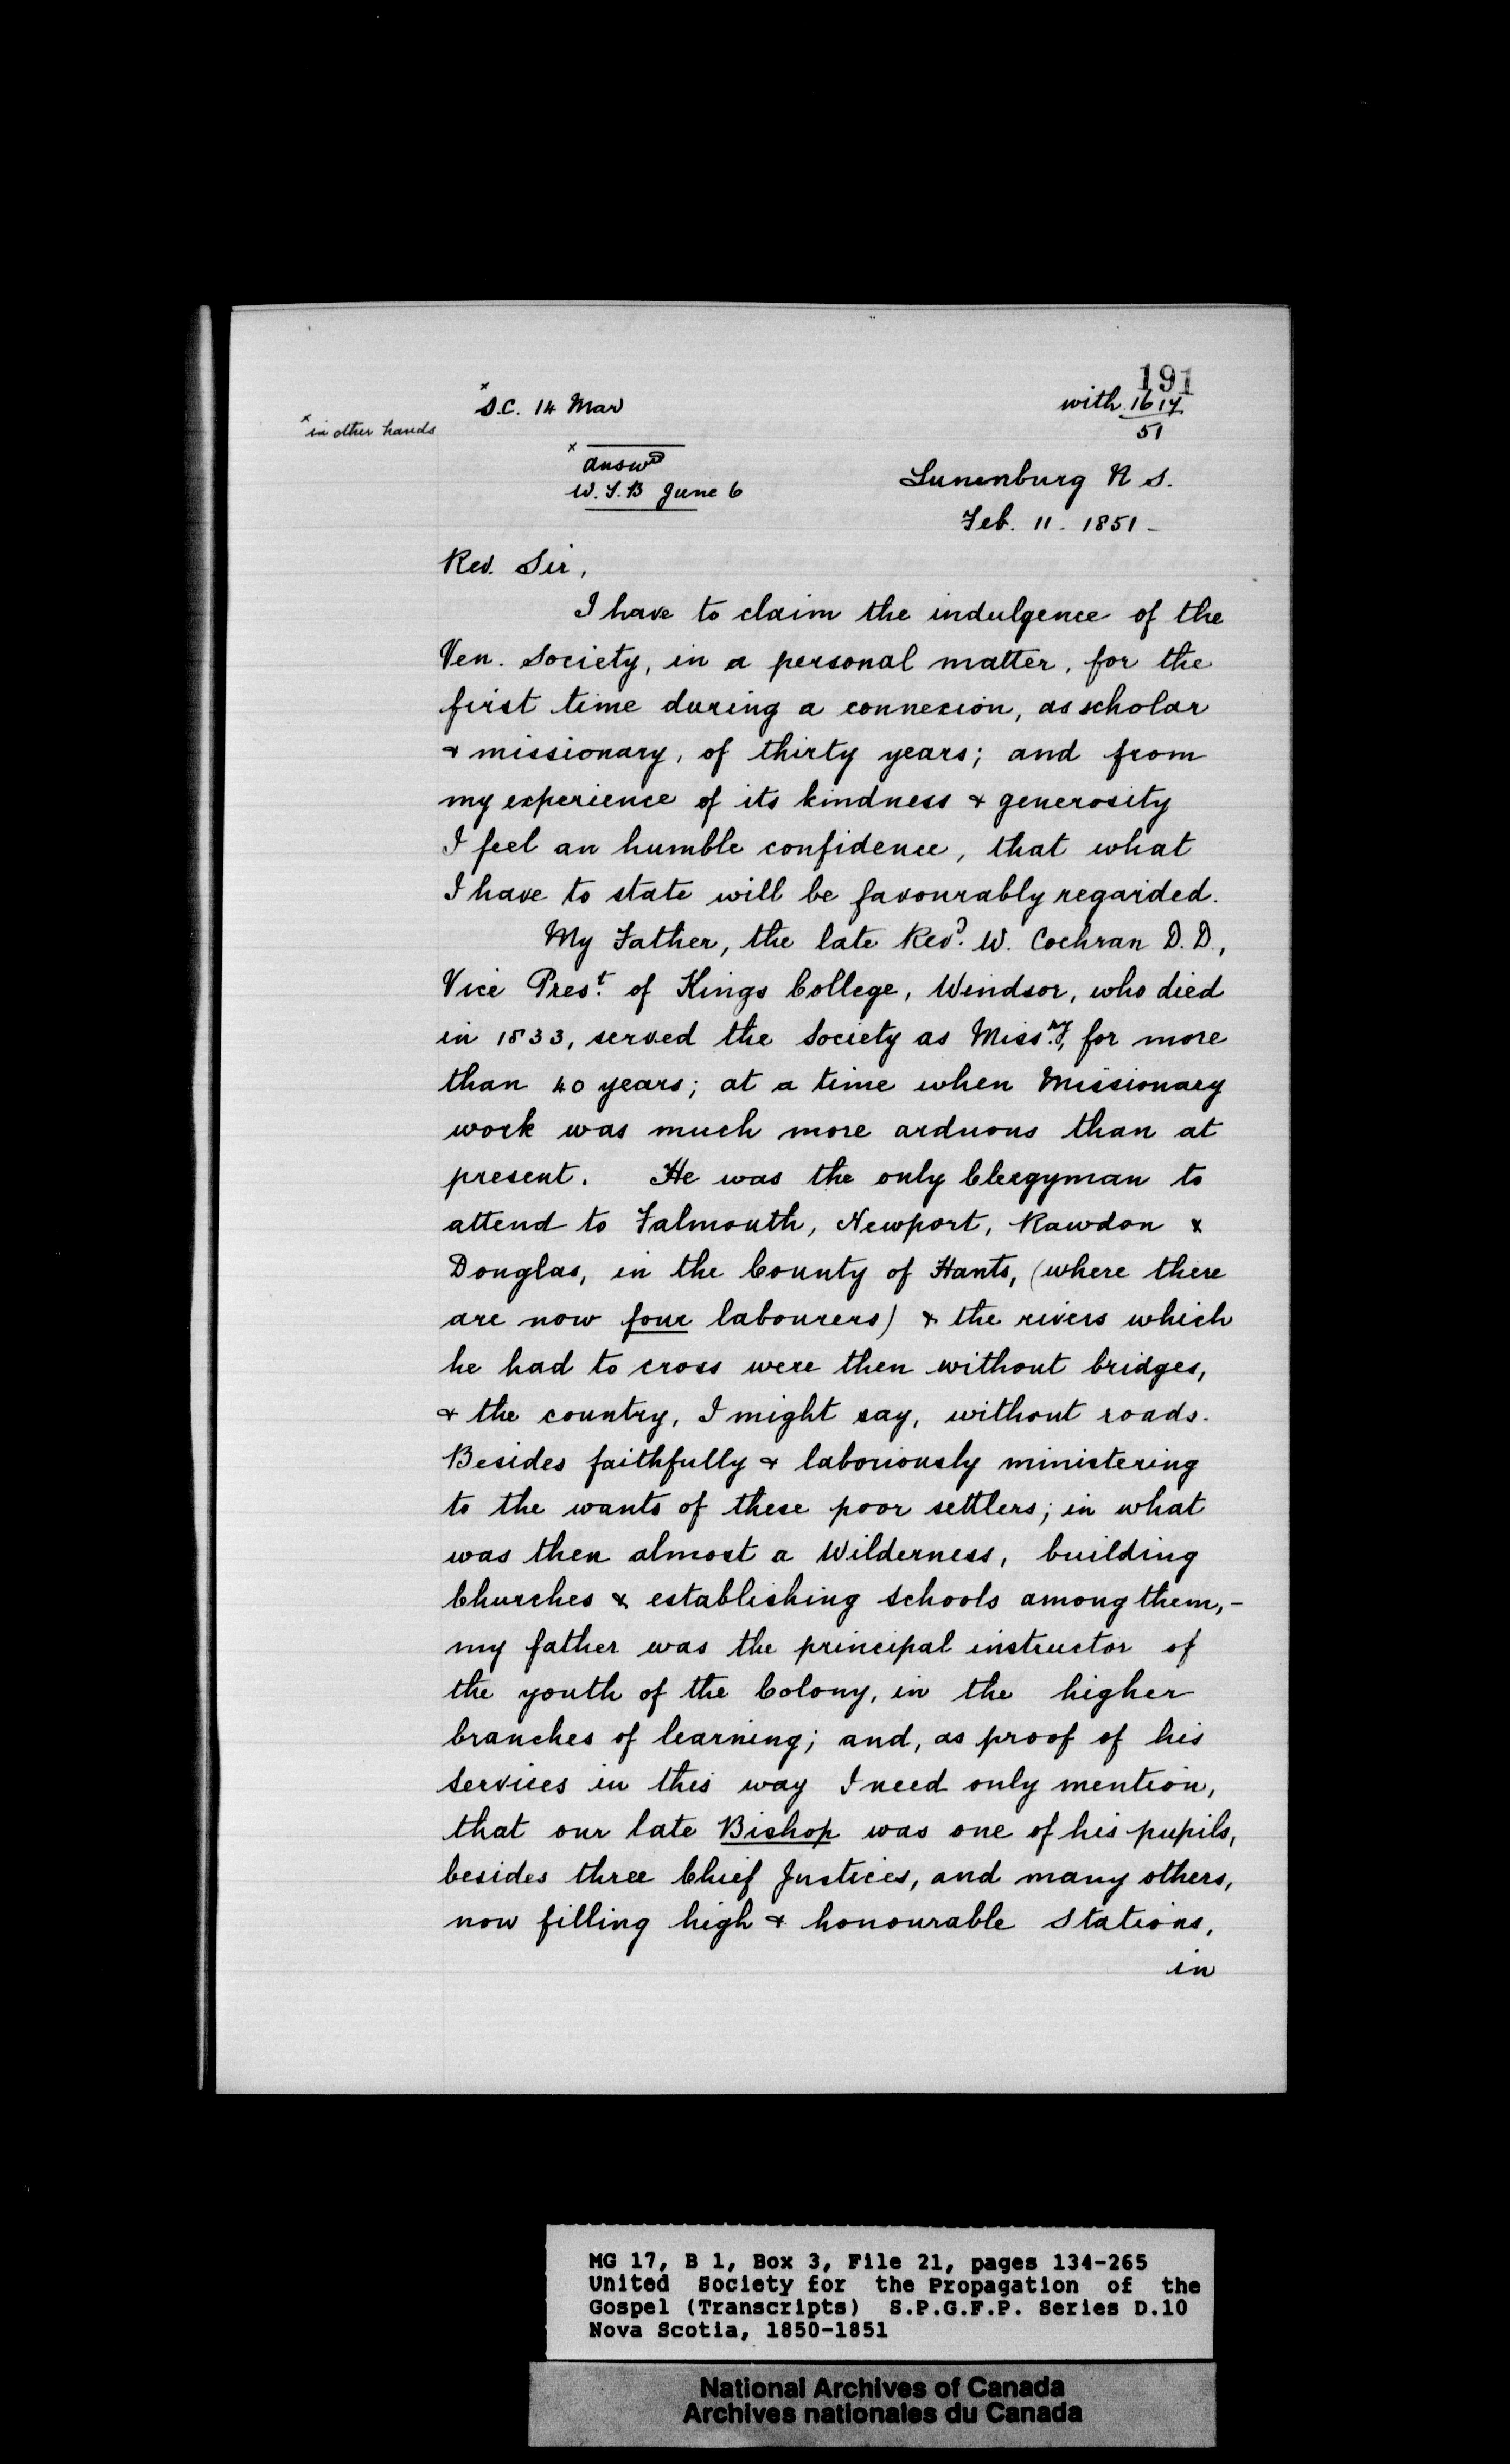 191
with 1617
51
x S.C. 14 Mar
x in other hands
x answd
W.T.B June 6
Lunenburg N S.
Feb. 11. 1851 -
Rev. Sir,
I have to claim the indulgence of the
Ven. Society, in a personal matter, for the
first time during a connexion, as scholar
& missionary, of thirty years; and from
my experience of its kindness & generosity
I feel an humble confidence, that what
I have to state will be favourably regarded.
My Father, the late Revd. W. Cochran D.D.,
Vice Prest. of Kings College, Windsor, who died
in 1833, served the Society as Missry, for more
than 40 years; at a time when Missionary
work was much more arduous than at
present. He was the only Clergyman to
attend to Falmouth, Newport, Rawdon &
Douglas, in the County of Hants, (where there
are now four labourers) & the rivers which
he had to cross were then without bridges,
& the country, I might say, without roads.
Besides faithfully & laboriously ministering
to the wants of these poor settlers; in what
was then almost a Wilderness, building
Churches & establishing schools among them,-
my father was the principal instructor of
the youth of the Colony, in the higher
branches of learning; and, as proof of his
services in this way I need only mention,
that our late Bishop was one of his pupils,
besides three Chief Justices, and many others,
now filling high & honourable Stations,
in
MG 17, B 1, Box 3, File 21, pages 134-265
United Society for the Propagation of the
Gospel (Transcripts) S.P.G.F.P. Series D.10
Nova Scotia, 1850-1851
National Archives of Canada
Archives nationales du Canada